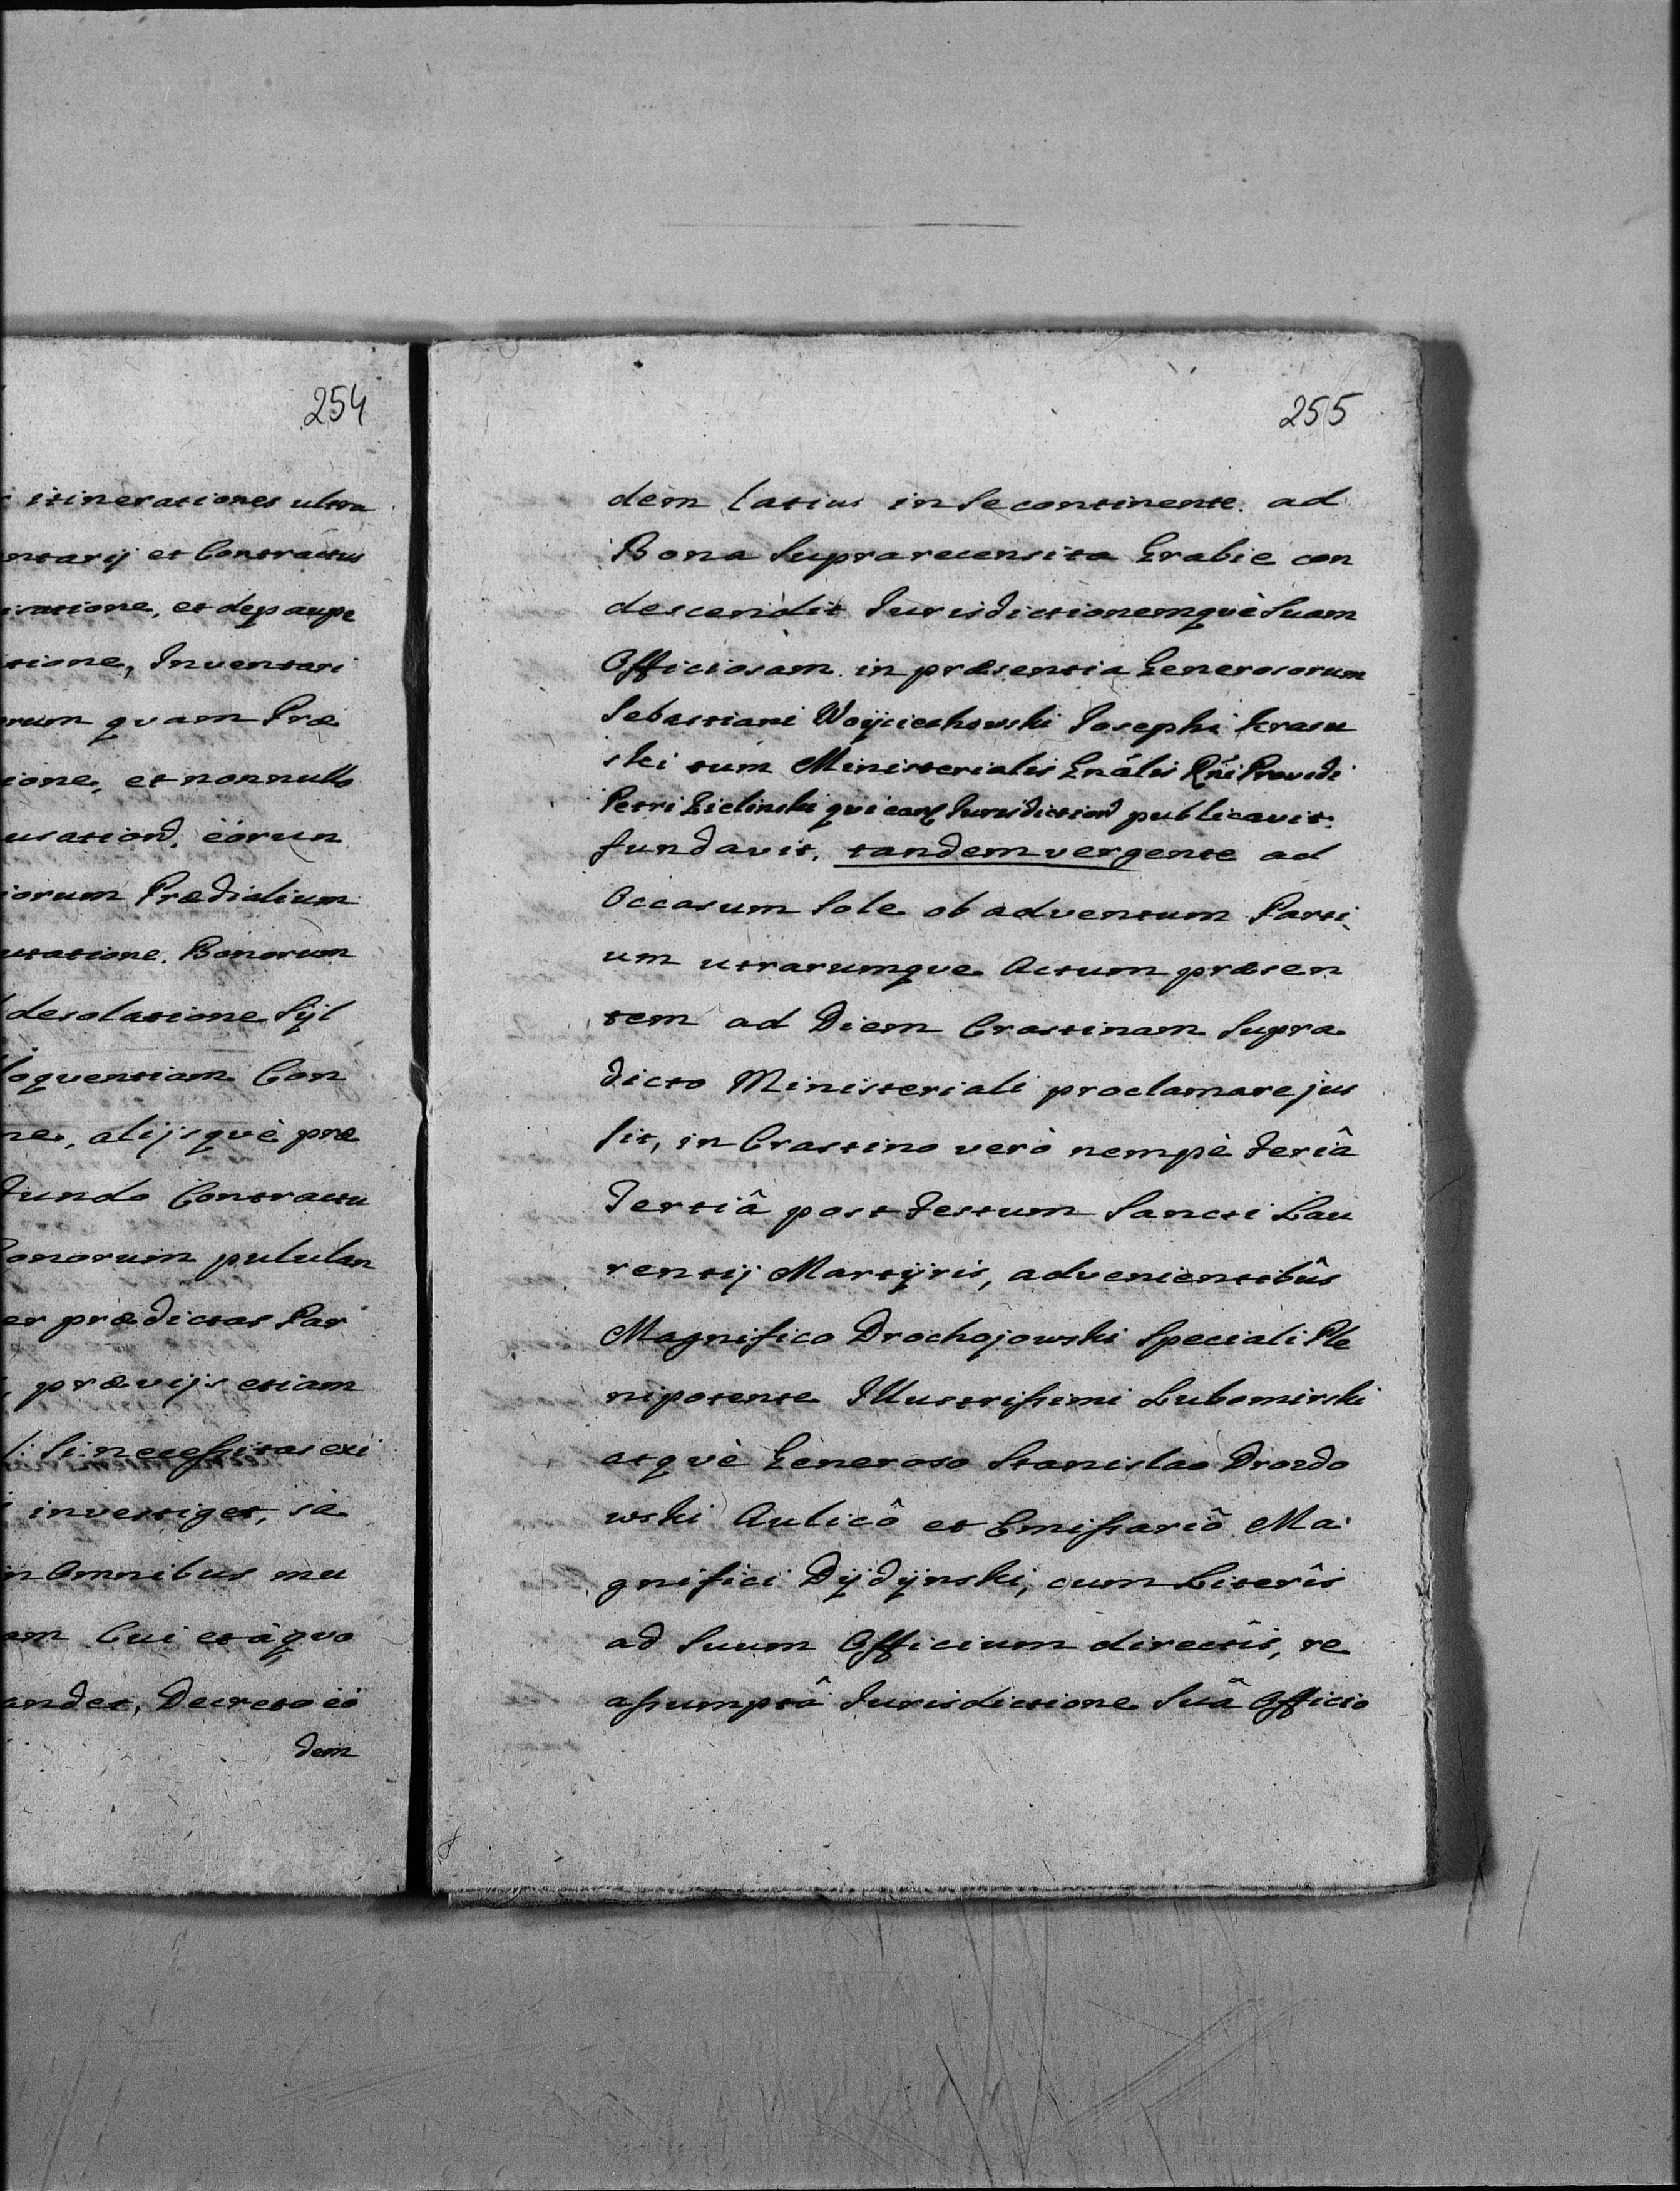 254
itinerationes ultra
ntarij et Contractus
isatione, et depaupe
tione, Inventari
orum quam Præ
ione, et nonnullo
usation̄, eòrun
iorum Prædialium
utatione Bonorum
desolatione Syl
loquentiam Con
nes, alijsquè præ
fundo Contractu
onorum pululan
er prædictas Par
prævijs etiam
/: Si necessitas exi
investiget, sa
in Omnibus mu
am Cui et à quo
andet, Decreto eò
dem
255
dem latius in se continente ad
Bona Suprarecensita Grabie con
descendit Jurisdictionemquè Suam
Officiosam in præsentia Generosorum
Sebastiani Woyciechowski Josephi Krasu
ski tum Ministerialis Gnâlis Rñi Providi
Petri Zielinski qui eam Jurisdiction̄ publicavit
fundavit, tandem vergente ad
Occasum Sole ob adventum Parti
um utrarumque Actum præsen
tem ad Diem Crastinam Supra
dicto Ministeriali proclamare jus
sit, in Crastino verò nempè Feriâ
Tertiâ post Festum Sancti Lau
rentij Martyris, advenientibûs
Magnifico Drohojowski Speciali Ple
nipotente Illustrissimi Lubomirski
atquè Generoso Stanislao Drozdo
wski Aulicô et Emissariô Ma
gnifici Dydynski, cum Literîs
ad Suum Officium directîs, re
assumptâ Jurisdictione Suâ Officio